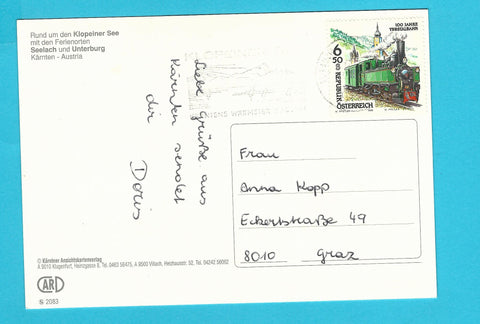 Rund um den Klopeiner See
mit den Ferienorten
Seelach und Unterburg
Kärnten - Austria
100 JAHRE
YBBSTALBAHN
6
50
REPUBLIK
ÖSTERREICH
Liebe Grüße aus
Kärnten sendet
dir
Doris
Frau
Anna Kopp
Eckertstraße 49
8010 Graz
© Kärntner Ansichtskartenverlag
A 9010 Klagenfurt, Heinzgasse 8, Tel. 0463 56475, A 9500 Villach, Heidtaustr. 52, Tel. 04242 56692
CARD
S 2083